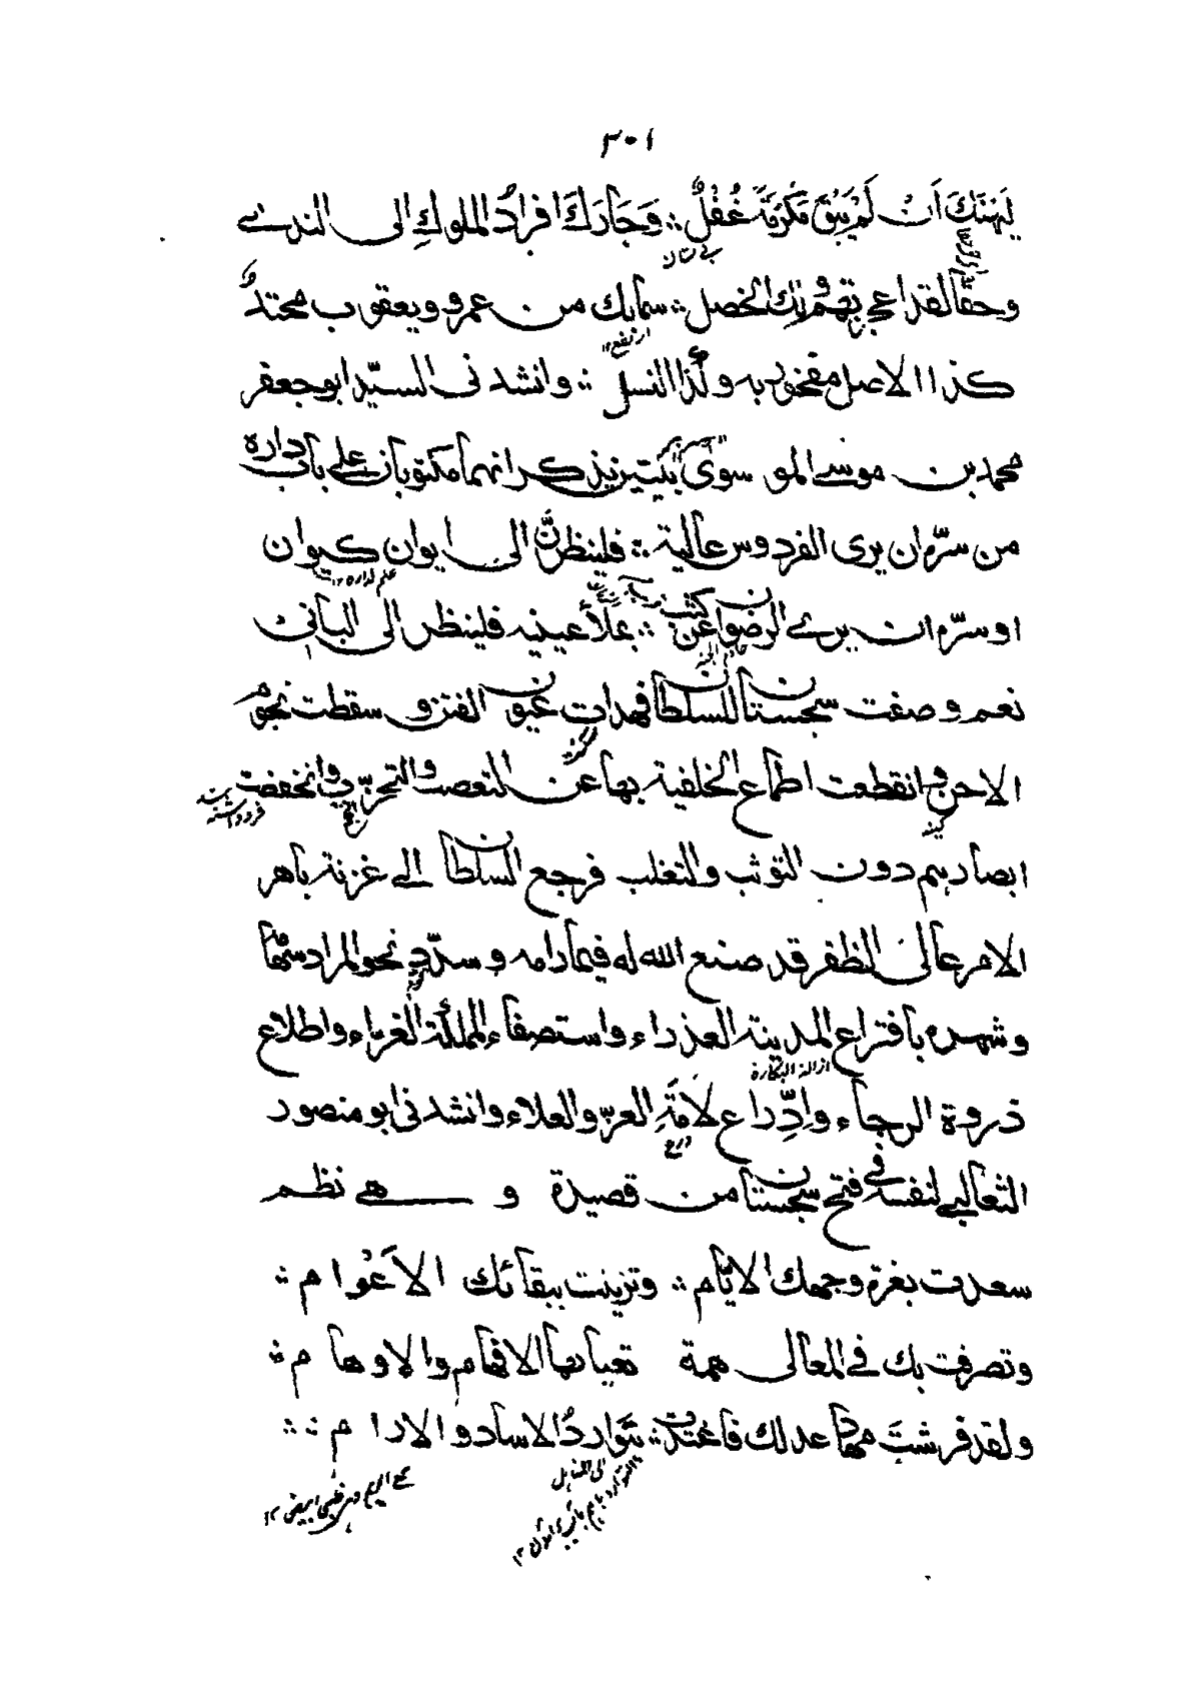 ٣٠١
ليهنك أن لم يبق مكرمة غُفْلٌ ؞ وجارك افرادُ الملوكِ الى الندے
وحقا لقد اعجزتهم ولك الخصل ؞ سمابك من عمرو ويعقوب محتدٌ
كذا الاصل مفخور به وكذا النسل ؞ وانشدنى السيّد ابوجعفر
محمد بن موسے الموسوىّ بيتين ذكر انهما مكتوبان علے باب داره
من سرّه ان يرى الفردوس عالية ؞ فلينظرنَّ الى ايوان كيوان
اوسرّه ان يرے الرضوان عن كثب ؞ بملأ عينيه فلينظر الى البانى
نعم وصفت سجستان للسلطان فهدات عيون الفتن و سقطت نجوم
الاحن وانقطعت اطماع الخلفية بها عن التعصب والتحزّب وانخفضت
ابصارهم دون التوثب والتغلب فرجع السلطان الے غزنة باهر
الامر عالى الظفر قد صنع الله له فيما رامه و سدّد نحو المراد سهامه
وشهره بافتراع المدينة العذراء واستصفاء المملكة الغرّاء واطلاع
ازالة البكارة
ذروة الرجاء وادِّراع لأمَةِ العزّ والعلاء وانشدنى ابو منصور
درع
الثعالبے لنفسه فى فتح سجستان من قصيدة و هے نظم
سعدت بغرة وجهك الايّام ؞ وتزينت ببقائك الأعْوام ؞
وتصرفت بك فى المعالى همة تعيا بها الافهام والاوهام ؞
ولقد فرشتَ مهاد عدلك فاغتدت ؞ تتوارَدُ الاساد والارام ؞